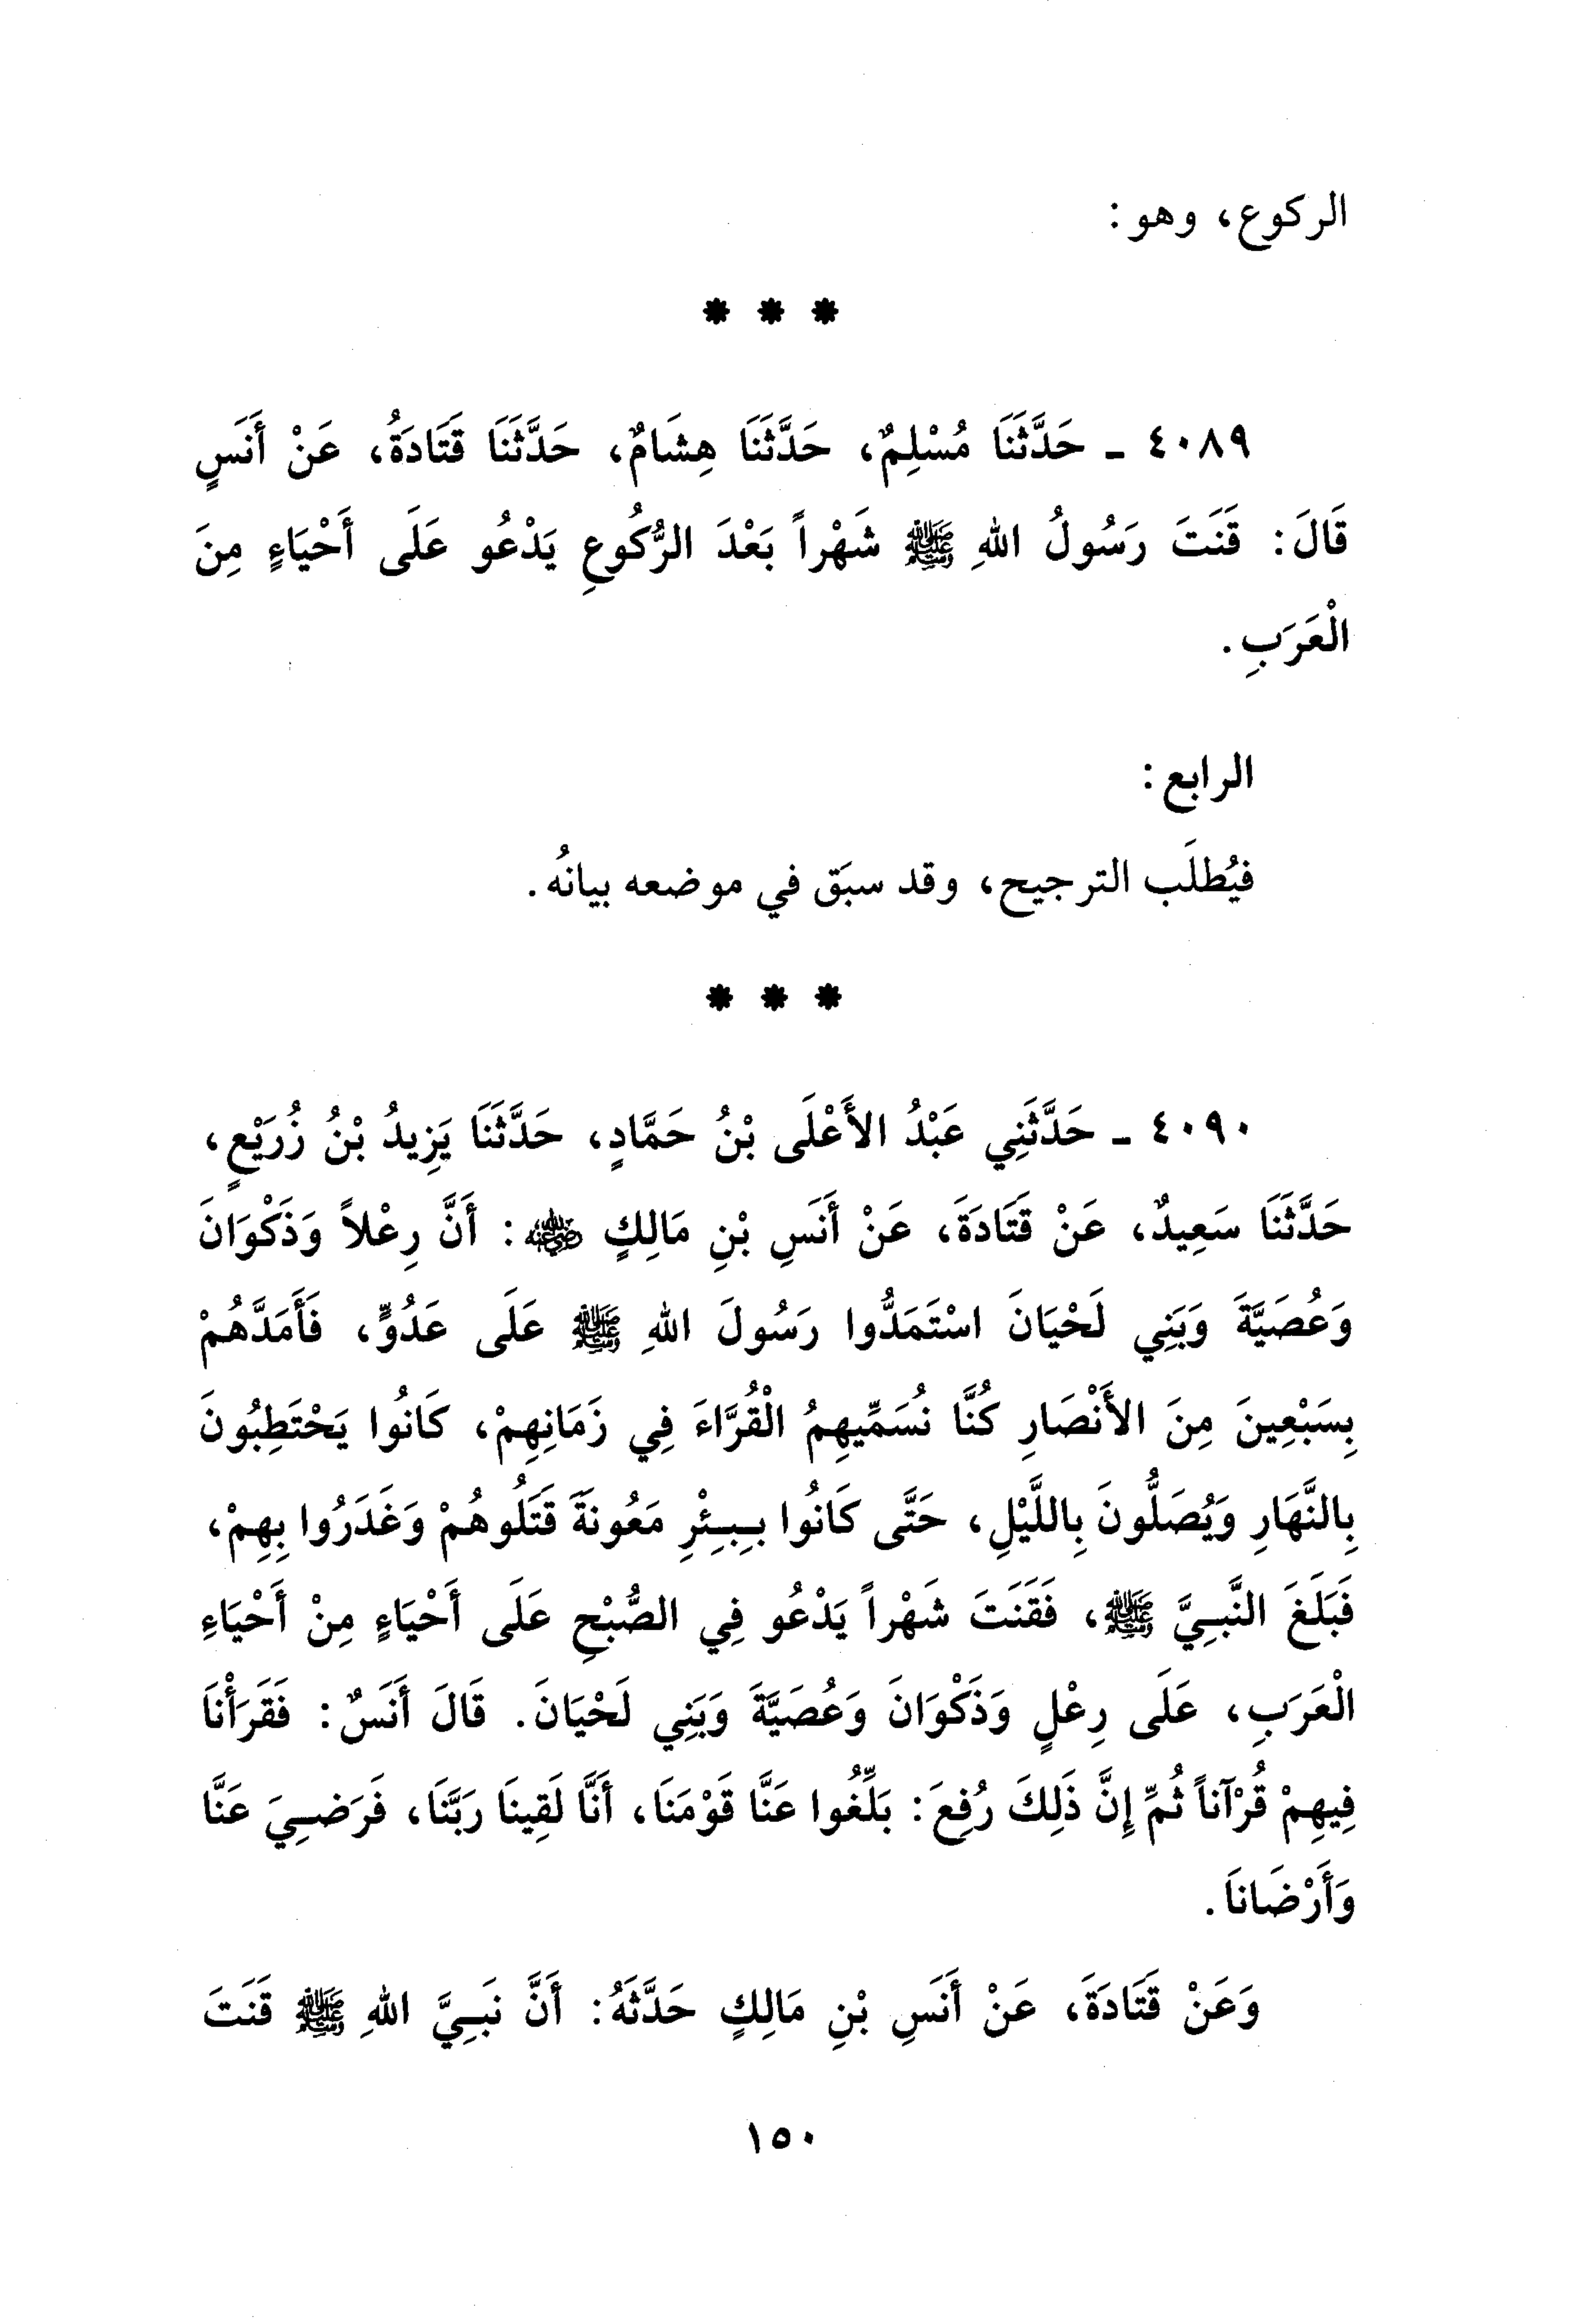 الركوع، وهو:
* * *
٤٠٨٩ - حَدَّثَنَا مُسْلِمٌ، حَدَّثَنَا هِشَامٌ، حَدَّثَنَا قَتَادَةُ، عَنْ أَنَسٍ
قَالَ: قَنَتَ رَسُولُ اللهِ ﷺ شَهْراً بَعْدَ الرُّكُوعِ يَدْعُو عَلَى أَحْيَاءٍ مِنَ
الْعَرَبِ.
الرابع:
فيُطلَب الترجيح، وقد سبَق في موضعه بيانُه.
* * *
٤٠٩٠ - حَدَّثَنِي عَبْدُ الأَعْلَى بْنُ حَمَّادٍ، حَدَّثَنَا يَزِيدُ بْنُ زُرَيْعٍ،
حَدَّثَنَا سَعِيدٌ، عَنْ قَتَادَةَ، عَنْ أَنَسِ بْنِ مَالِكٍ ﵁: أَنَّ رِعْلاً وَذَكْوَانَ
وَعُصَيَّةَ وَبَنِي لَحْيَانَ اسْتَمَدُّوا رَسُولَ اللهِ ﷺ عَلَى عَدُوٍّ، فَأَمَدَّهُمْ
بِسَبْعِينَ مِنَ الأَنْصَارِ كُنَّا نُسَمِّيهِمُ الْقُرَّاءَ فِي زَمَانِهِمْ، كَانُوا يَحْتَطِبُونَ
بِالنَّهَارِ وَيُصَلُّونَ بِاللَّيْلِ، حَتَّى كَانُوا بِبِئْرِ مَعُونَةَ قَتَلُوهُمْ وَغَدَرُوا بِهِمْ،
فَبَلَغَ النَّبِيَّ ﷺ، فَقَنَتَ شَهْراً يَدْعُو فِي الصُّبْحِ عَلَى أَحْيَاءٍ مِنْ أَحْيَاءِ
الْعَرَبِ، عَلَى رِعْلٍ وَذَكْوَانَ وَعُصَيَّةَ وَبَنِي لَحْيَانَ. قَالَ أَنَسٌ: فَقَرَأْنَا
فِيهِمْ قُرْآناً ثُمِّ إِنَّ ذَلِكَ رُفِعَ: بَلِّغُوا عَنَّا قَوْمَنَا، أَنَّا لَقِينَا رَبَّنَا، فَرَضِيَ عَنَّا
وَأَرْضَانَا.
وَعَنْ قَتَادَةَ، عَنْ أَنَسِ بْنِ مَالِكٍ حَدَّثَهُ: أَنَّ نَبِيَّ اللهِ ﷺ قَنَتَ
١٥٠